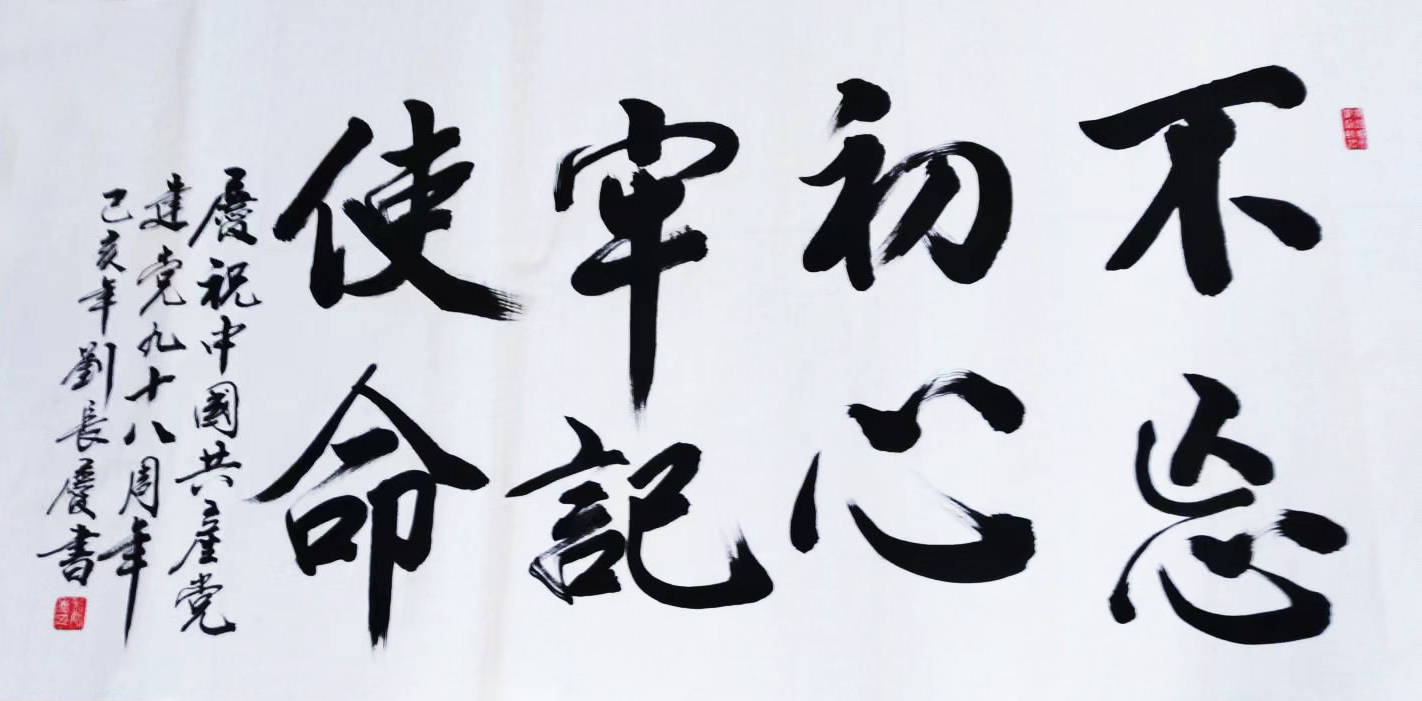 不忘
初心
牢記
使命
慶祝中國共産党
建党九十八周年
己亥年劉長慶書